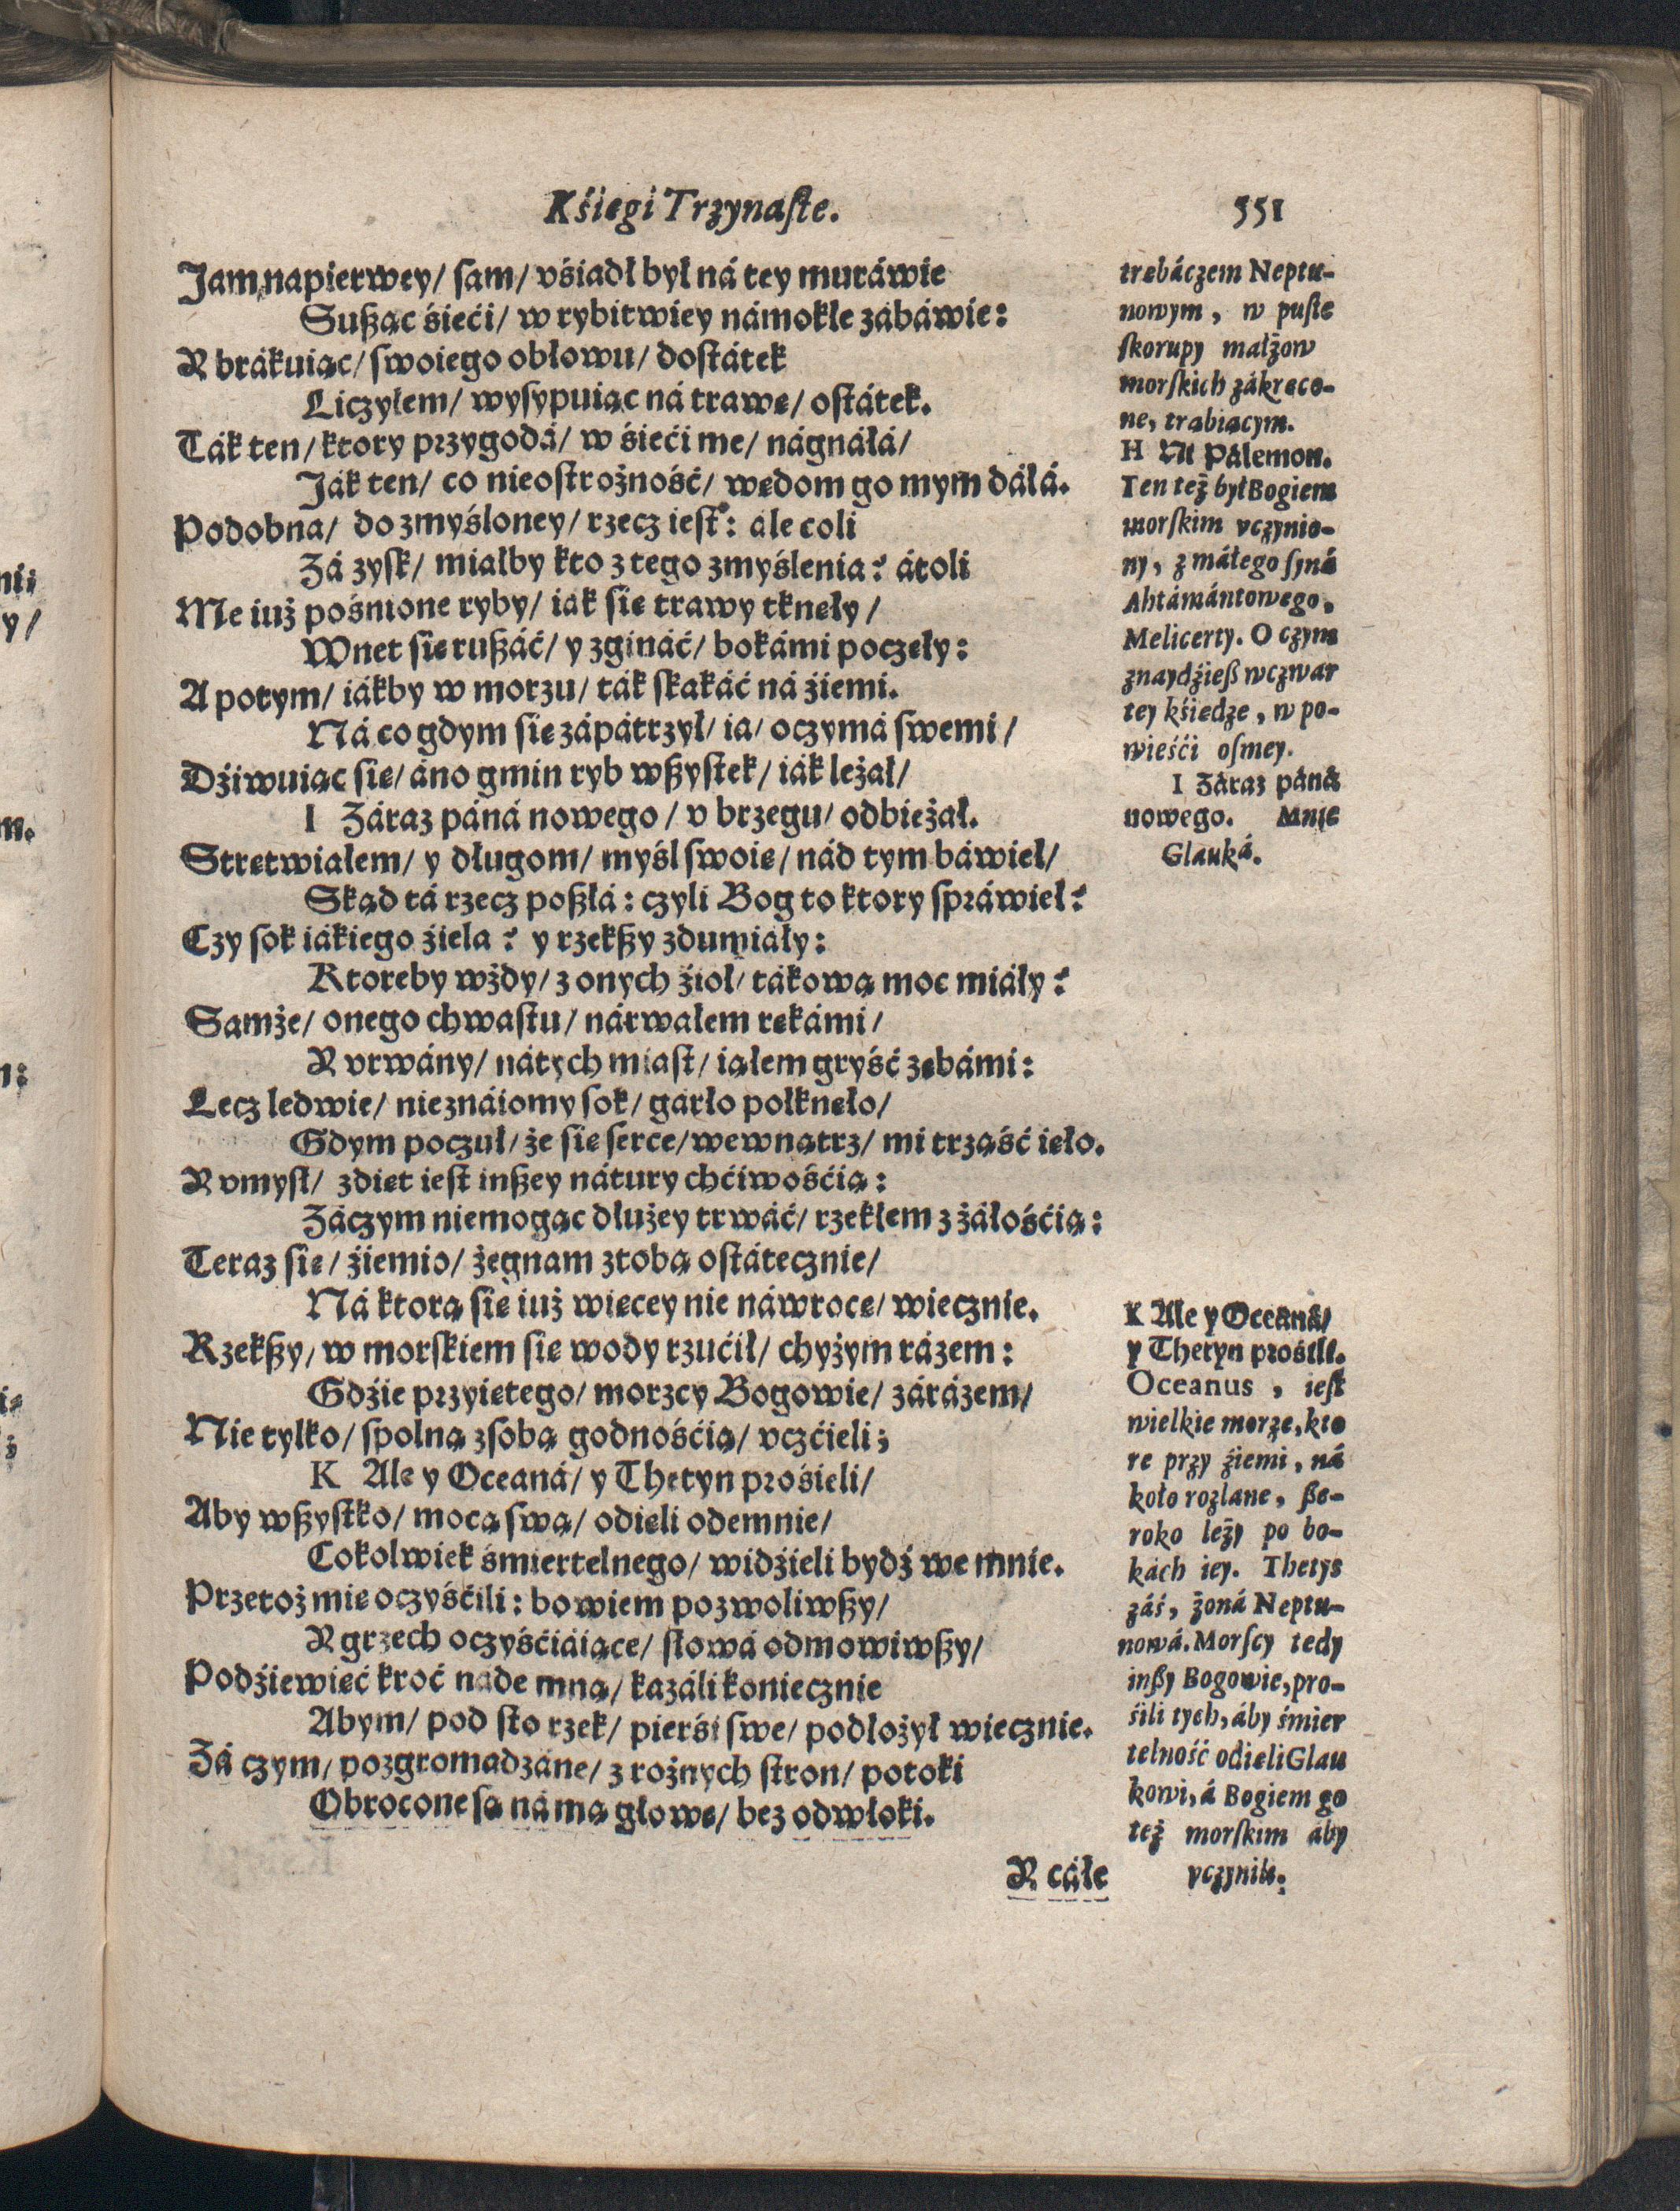 Kśiegi Trzynaste. 551
Jam napierwey/ sam/ vśiadł był ná tey muráwie
Sußąc śieći/ w rybitwiey námokłe zábáwie:
Y brákuiąc/ swoiego obłowu/ dostátek
Liczyłem/ wysypuiąc ná trawę/ ostátek.
Ták ten/ ktory przygodá/ w śieći me/ nágnáłá/
Ják ten/ co nieostrożność/ wędom go mym dáłá.
Podobna/ do zmyśloney/ rzecz iest: ale coli
Zá zysk/ miałby kto z tego zmyślenia? átoli
Me iuż pośnione ryby/ iák się trawy tknęły/
Wnet się rußáć/ y zgináć/ bokámi poczęły:
A potym/ iákby w morzu/ ták skakáć ná źiemi.
Ná co gdym się zápátrzył/ ia/ oczymá swemi/
Dźiwuiąc się/ áno gmin ryb wßystek/ iák leżał/
I Záraz páná nowego/ v brzegu/ odbieżał.
Stretwiałem/ y długom/ myśl swoię/ nád tym báwieł/
Skąd tá rzecz poßłá: czyli Bog to ktory spráwieł?
Czy sok iákiego źiela? y rzekßy zdumiáły:
Ktoreby wżdy/ z onych źioł/ tákową moc miáły?
Samże/ onego chwastu/ nárwałem rękámi/
Y vrwány/ nátych miast/ iąłem gryść zębámi:
Lecz ledwie/ nieznáiomy sok/ gárło połknęło/
Gdym poczuł/ że się serce/ wewnątrz/ mi trząść ięło.
Y vmysł/ zdięt iest inßey nátury chćiwośćią:
Záczym niemogąc dłużey trwáć/ rzekłem z żáłośćią:
Teraz się/ źiemio/ żegnam z tobą ostátecznie/
Ná ktorą się iuż więcey nie náwrocę/ wiecznie.
Rzekßy/ w morskiem się wody rzućił/ chyżym rázem:
Gdźie przyiętego/ morzcy Bogowie/ zárázem/
Nie tylko/ spolną z sobą godnośćią/ vczćieli;
K Ale y Oceaná/ y Thetyn prośieli/
Aby wßystko/ mocą swą/ odięli odemnie/
Cokolwiek śmiertelnego/ widźieli bydź we mnie.
Przetoż mię oczyśćili: bowiem pozwoliwßy/
Y grzech oczyśćiáiące/ słowá odmowiwßy/
Podźiewięć kroć náde mną/ kazáli koniecznie
Abym/ pod sto rzek/ pierśi swe/ podłożył wiecznie.
Zá czym/ pozgromadzáne/ z rożnych stron/ potoki
Obrocone są ná mą głowę/ bez odwłoki.
Y cáłe
trębáczem Neptu-
nowym, w puste
skorupy małżow
morskich zákręco-
ne, trabiącym.
H Ni Pálemon.
Ten też był Bogiem
morskim vczynio-
ny, z máłego syná
Ahtámántowego,
Melicerty. O czym
znaydźieß w czwar
tey kśiędze, w po-
wieśći osmey.
I Záraz páná
nowego. Mnie
Glauká.
K Ale y Oceaná/
y Thetyn prośili.
Oceanus, iest
wielkie morze, kto
re przy źiemi, ná
koło rozlane, ße-
roko leży po bo-
kách iey. Thetys
záś, żoná Neptu-
nowá. Morscy tedy
inßy Bogowie, pro-
śili tych, áby śmier
telność odięli Glau
kowi, á Bogiem go
też morskim áby
vczynili.